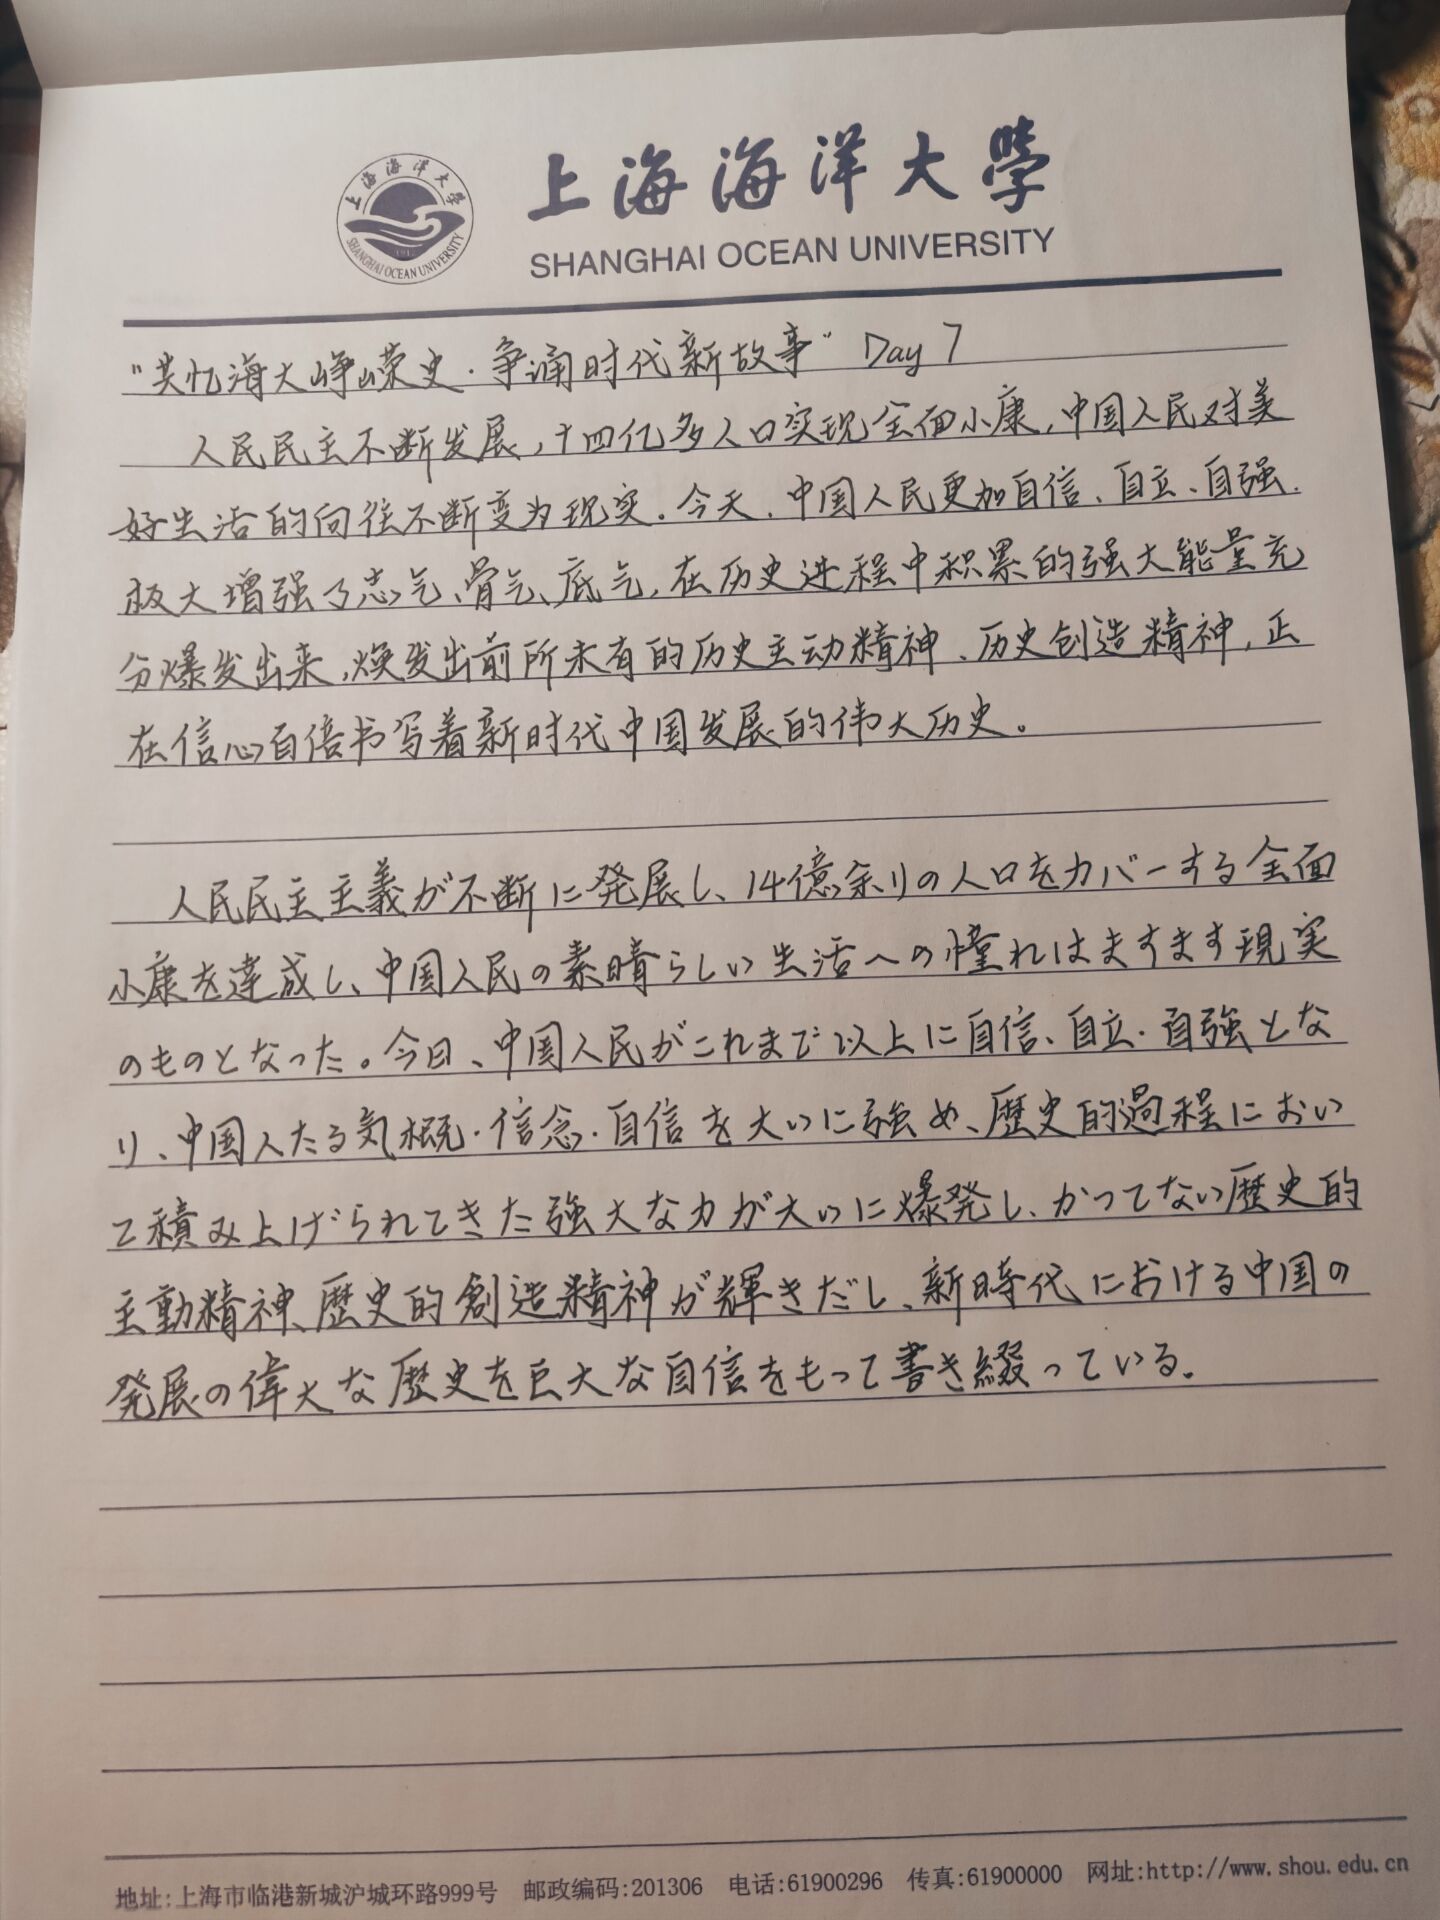 上海海洋大学
SHANGHAI OCEAN UNIVERSITY
上海海洋大学
SHANGHAI OCEAN UNIVERSITY
1912
"共忆海大峥嵘史·争诵时代新故事" Day 7
人民民主不断发展,十四亿多人口实现全面小康,中国人民对美
好生活的向往不断变为现实.今天.中国人民更加自信、自立、自强.
极大增强了志气、骨气、底气,在历史进程中积累的强大能量充
分爆发出来,焕发出前所未有的历史主动精神、历史创造精神,正
在信心百倍书写着新时代中国发展的伟大历史。
人民民主主義が不断に発展し、14億余りの人口をカバーする全面
小康を達成し、中国人民の素晴らしい生活への憧れはますます現実
のものとなった。今日、中国人民がこれまで以上に自信、自立·自強とな
り、中国人たる気概·信念·自信を大いに強め、歴史的過程におい
て積み上げられてきた強大な力が大いに爆発し、かつてない歴史的
主動精神、歴史的創造精神が輝きだし、新時代における中国の
発展の偉大な歴史を巨大な自信をもって書き綴っている.
地址:上海市临港新城沪城环路999号 邮政编码:201306 电话:61900296 传真:61900000 网址:http://www.shou.edu.cn